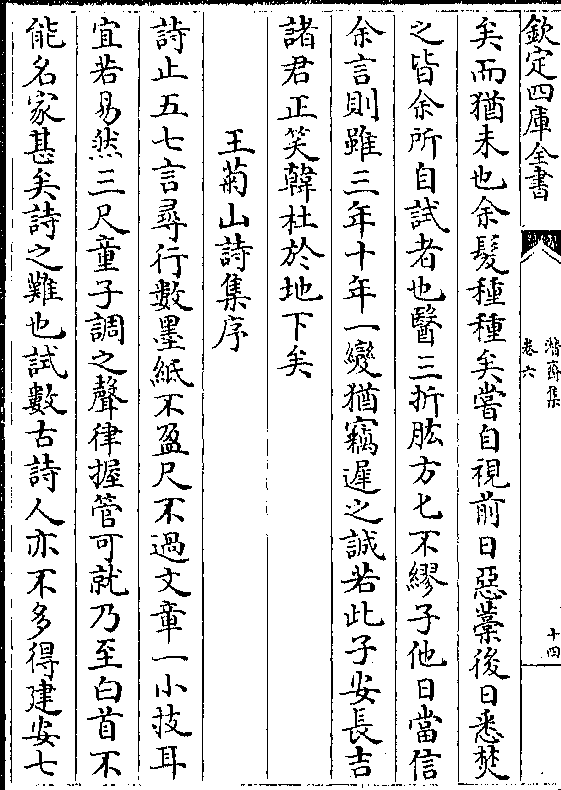 欽定四庫全書
潛齋集
卷六
十四
矣而猶未也余髮種種矣嘗自視前日惡藁後日悉焚
之皆余所自試者也醫三折肱方匕不繆子他日當信
余言則雖三年十年一變猶竊遲之誠若此子安長吉
諸君正笑韓杜於地下矣
王菊山詩集序
詩止五七言尋行數墨紙不盈尺不過文章一小技耳
宜若易然三尺童子調之聲律握管可就乃至白首不
能名家甚矣詩之難也試數古詩人亦不多得建安七